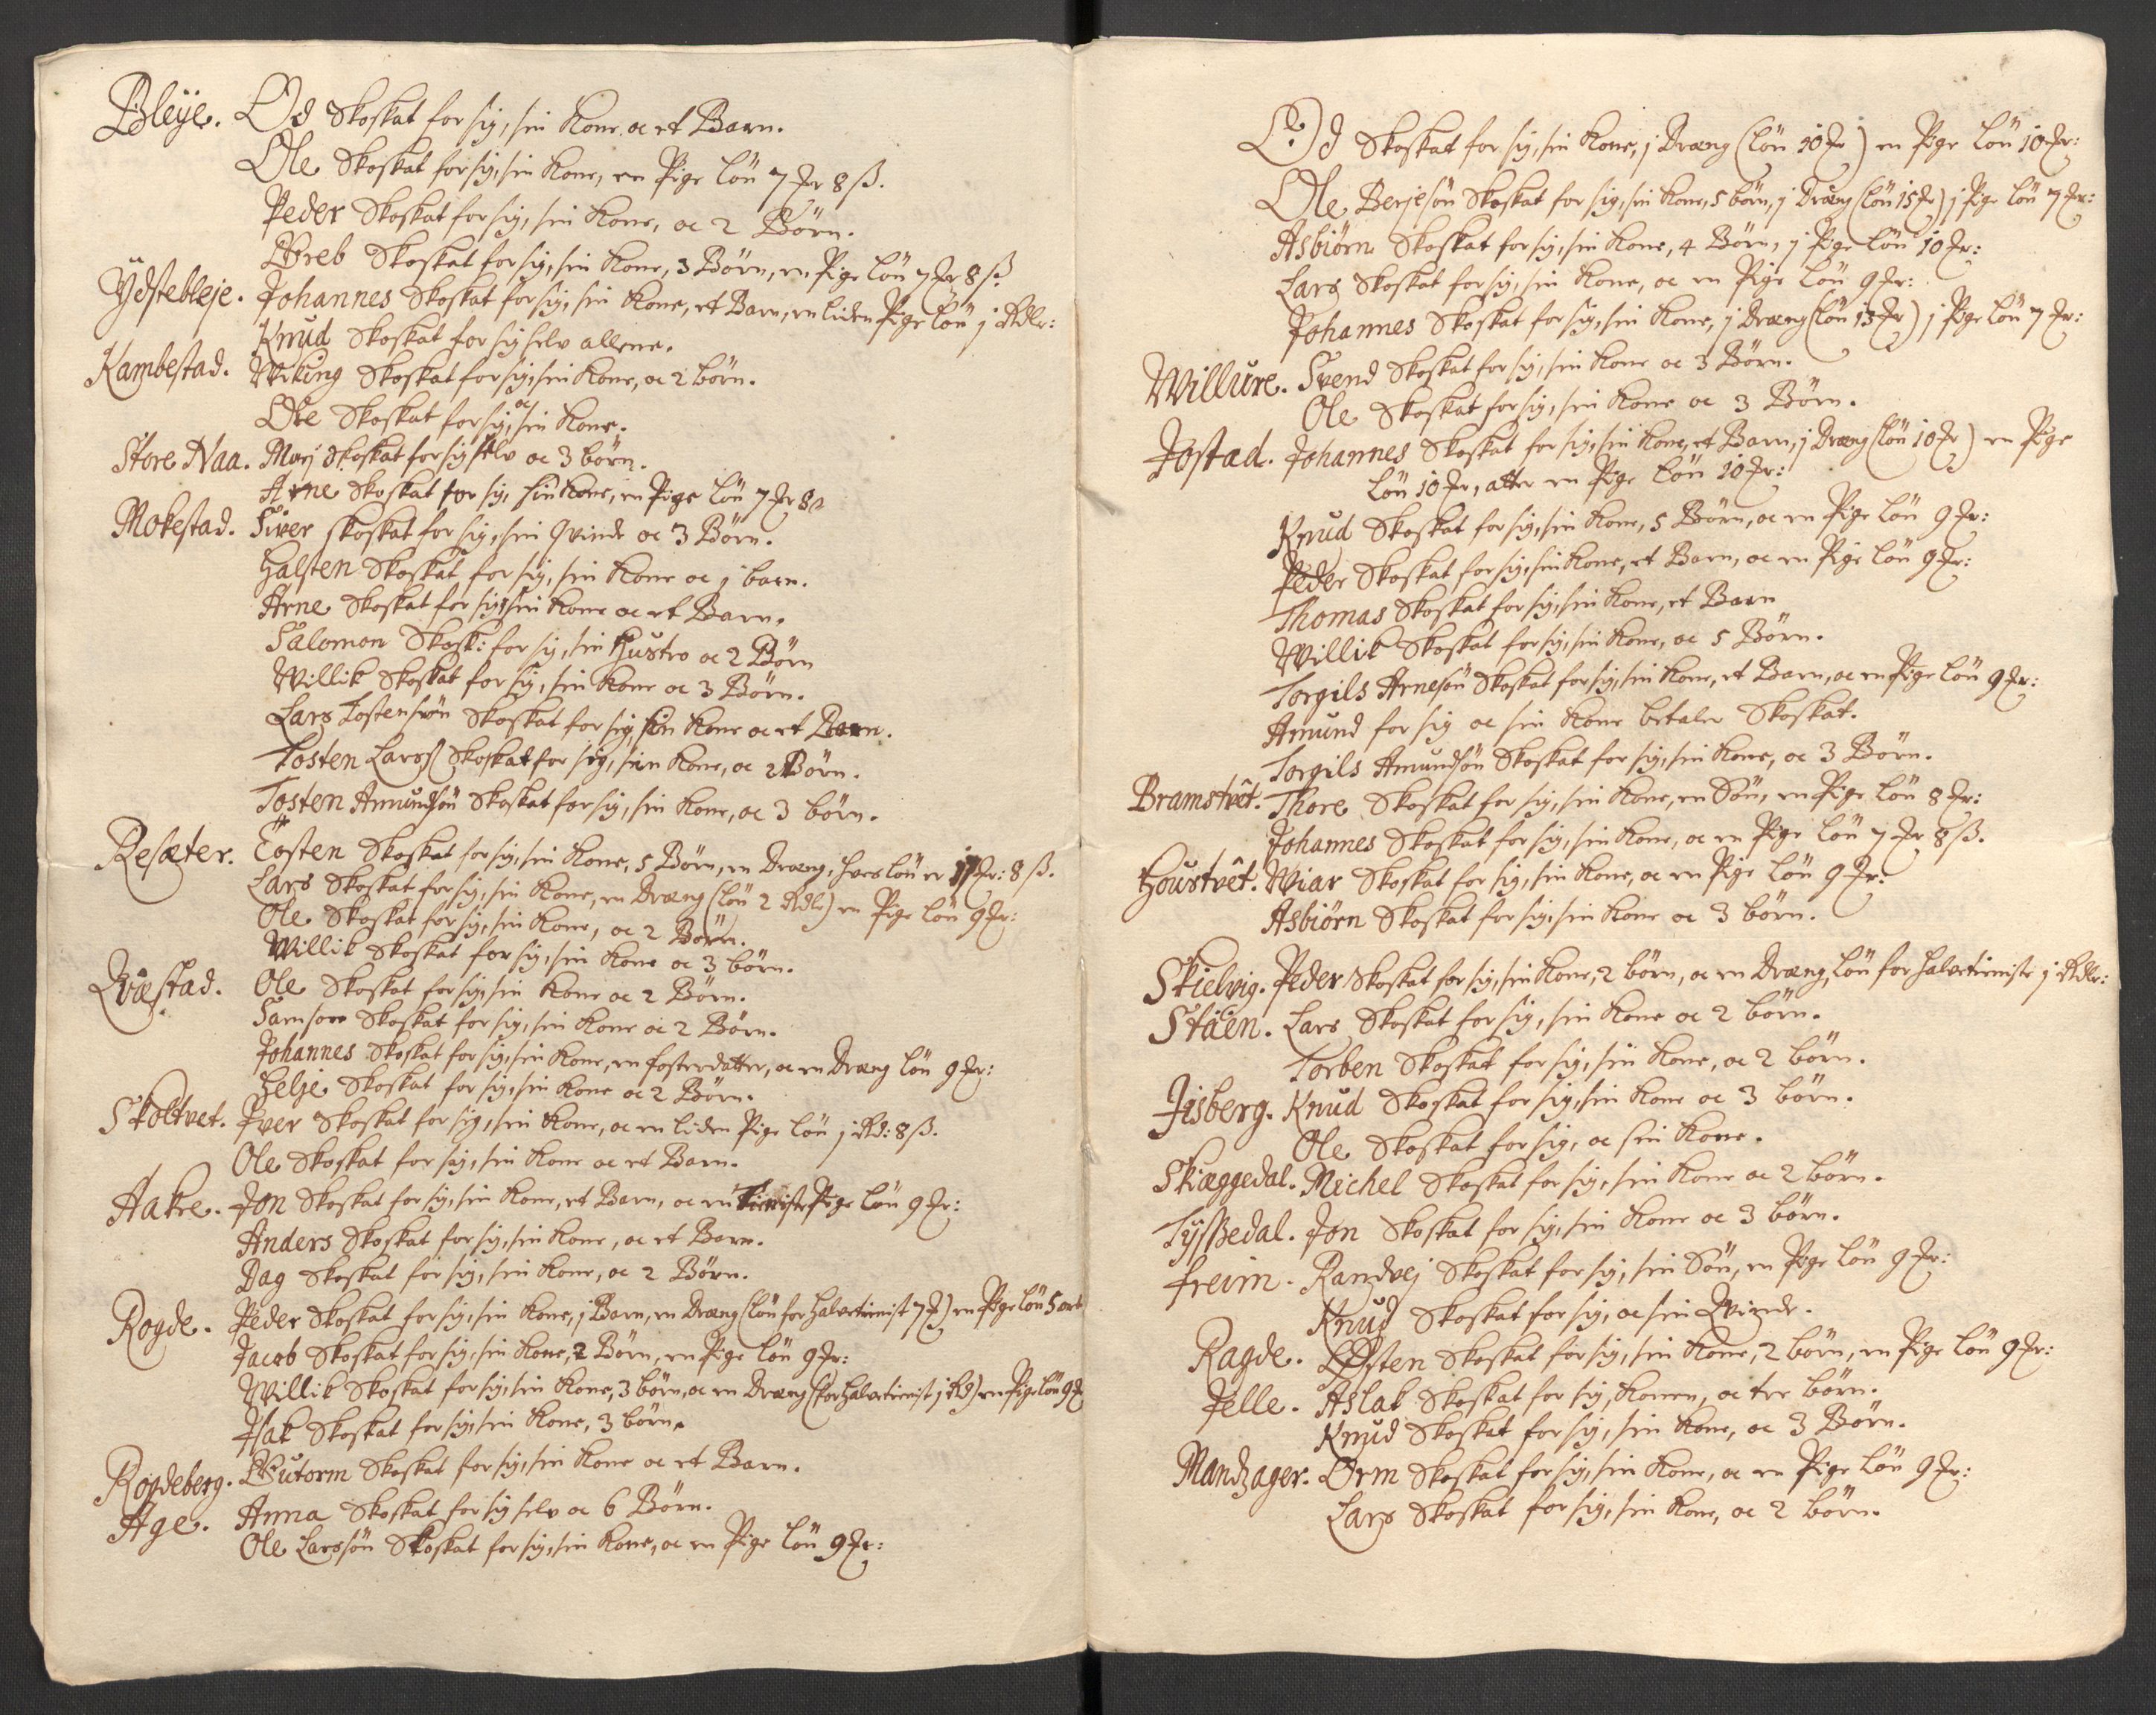 Bleÿe. Od Skoskat for sig, sin Kone oc et Barn.
Ole Skoskat for sig, sin Kone, en Pige Lön 7 Jr 8 ß.
Peder Skoskat for sig, sin Kone, oc 2 Börn.
Greb Skoskat for sig, sin Kone, 3 Börn, en Pige Lön 7 Jr 8 ß
Ÿdstebleje. Johannes Skoskat for sig, sin Kone, et Barn, en liden Pige Lön j Rdlr:
Knud Skoskat for sig selv allene.
Kambestad. Wiking Skoskat for sig, sin Kone, oc 2 börn.
Ole Skoskat for sig, oc sin Kone.
Store Naa. Marj Skoskat for sig selv oc 3 börn.
Arne Skoskat for sig, sin Kone, en Pige Lön 7 Jr 8 ß
Mokestad. Siver skoskat for sig, sin Qvinde oc 3 Börn.
Halsten Skoskat for sig, sin Kone oc j barn.
Arne Skoskat for sig, sin Kone oc et Barn.
Salomon Skosk: for sig, sin Hustro oc 2 Börn
Willik Skoskat for sig, sin Kone oc 3 Börn.
Lars Tostensøn Skoskat for sig, sin Kone oc et Barn.
Tosten Larsß Skoskat for sig, sin Kone, oc 2 Börn.
Tosten Amundsön Skoskat for sig, sin Kone, oc 3 börn.
Resæter. Eosten Skoskat for sig, sin Kone, 5 Börn, en Dræng, hves Lön er 11 Jr: 8 ß.
Lars Skoskat for sig, sin Kone, en Dræng (Lön 2 Rdlr) en Pige Lön 9 Jr:
Ole Skoskat for sig, sin Kone, oc 2 Börn.
Willik Skoskat for sig, sin Kone oc 3 börn.
Qvæstad. Ole Skoskat for sig, sin Kone oc 2 Börn.
Samson Skoskat for sig, sin Kone oc 2 Börn.
Johannes Skoskat for sig, sin Kone, en fosterdatter, oc en Dræng Lön 9 Jr:
Helje Skoskat for sig, sin Kone oc 2 Börn.
Skoltvet. Iver Skoskat for sig, sin Kone, oc en liden Pige Lön j Rd: 8 ß.
Ole Skoskat for sig, sin Kone oc et Barn.
Aakre. Jon Skoskat for sig, sin Kone, et Barn, oc en Tieniste Pige Lön 9 Jr:
Anders Skoskat for sig, sin Kone, oc et Barn.
Dag Skoskat for sig, sin Kone, oc 2 Börn.
Rogde. Peder Skoskat for sig, sin Kone, j Barn, en Dræng (Lön for halvetienist 7 Jr) en Pige Lön 5 ort
Jacob Skoskat for sig, sin Kone, 2 Börn, en Pige Lön 9 Jr:
Willik Skoskat for sig, sin Kone, 3 börn, oc en Dræng (for halvetienist j Rd) en Pige Lön 9 Jr
Isak Skoskat for sig, sin Kone, 3 börn.
Rogdeberg. Gutorm Skoskat for sig, sin Kone oc et Barn.
Age. Anna Skoskat for sig selv oc 6 Börn.
Ole Larssön Skoskat for sig, sin Kone, oc en Pige Lön 9 Jr:
Od Skoskat for sig, sin Kone, j Dræng (Lön 10 Jr) en Pige Lön 10 Jr:
Ole Berjesön Skoskat for sig, sin Kone, 5 börn, j Dræng (Lön 15 Jr) j Pige Lön 7 Jr:
Asbiörn Skoskat for sig, sin Kone, 4 Börn, j Pige Lön 10 Jr:
Lars Skoskat for sig, sin Kone, oc en Pige Lön 9 Jr:
Johannes Skoskat for sig, sin Kone, j Dræng (Lön 13 Jr) j Pige Lön 7 Jr:
Willure. Svend Skoskat for sig, sin Kone oc 3 Börn.
Ole Skoskat for sig, sin Kone oc 3 Börn.
Jostad. Johannes Skoskat for sig, sin Kone, et Barn, j Dræng (Lön 10 Jr) en Pige
Lön 10 Jr, atter en Pige Lön 10 Jr:
Knud Skoskat for sig, sin Kone, 5 Börn, oc en Pige Lön 9 Jr:
Peder Skoskat for sig, sin Kone, et Barn, oc en Pige Lön 9 Jr:
Thomas Skoskat for sig, sin Kone, et Barn
Willik Skoskat for sig, sin Kone, oc 5 Börn.
Torgils Arnesön Skoskat for sig, sin Kone, et Barn, oc en Pige Lön 9 Jr:
Amund for sig oc sin Kone betaler Skoskat.
Torgils Amundsön Skoskat for sig, sin Kone, oc 3 Börn.
Bramstvêt. Thore Skoskat for sig, sin Kone, en Sön, en Pige Lön 8 Jr:
Johannes Skoskat for sig, sin Kone, oc en Pige Lön 7 Jr 8 ß.
Houstvêt. Wiar Skoskat for sig, sin Kone, oc en Pige Lön 9 Jr:
Asbiörn Skoskat for sig, sin Kone oc 3 börn.
Skielvig. Peder Skoskat for sig, sin Kone, 2 börn, oc en Dræng, Lön for halvetieniste j Rdlr:
Stäen. Lars Skoskat for sig, sin Kone oc 2 börn.
Torben Skoskat for sig, sin Kone, oc 2 börn.
Iisberg. Knud Skoskat for sig, sin Kone oc 3 börn.
Ole Skoskat for sig, oc sin Kone.
Skiæggedal. Michel Skoskat for sig, sin Kone oc 2 börn.
Tÿssedal. Jon Skoskat for sig, sin Kone oc 3 börn.
freim. Randvej Skoskat for sig, sin Sön, en Pige Lön 9 Jr:
Knud Skoskat for sig, oc sin Qvinde.
Ragde. Östen Skoskat for sig, sin Kone, 2 börn, en Pige Lön 9 Jr:
Jelle. Aslak Skoskat for sig, Konen, oc tre börn.
Knud Skoskat for sig, sin Kone, oc 3 Börn.
Mandzager. Orm Skoskat for sig, sin Kone, oc en Pige Lön 9 Jr:
Lars Skoskat for sig, sin Kone, oc 2 börn.